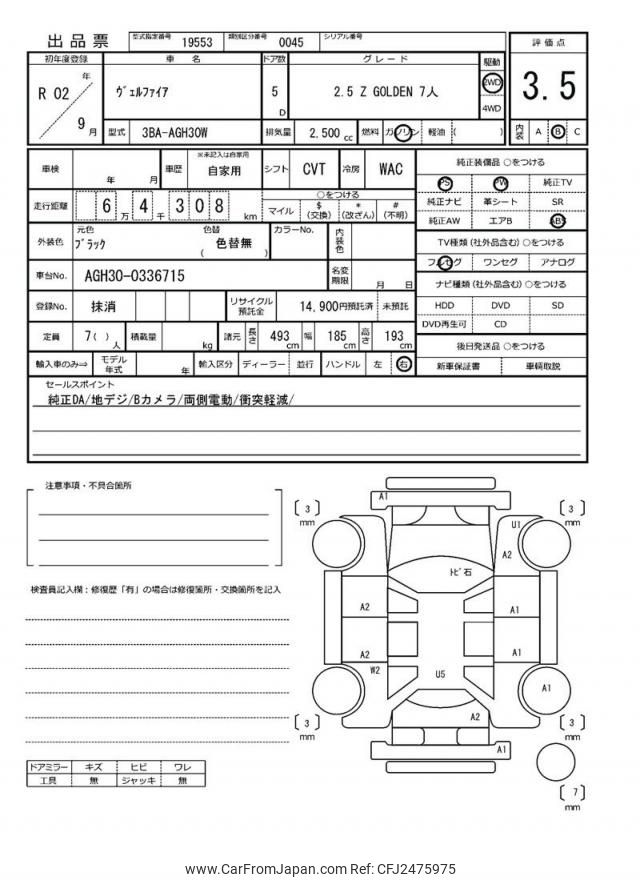 出品票 型式指定番号 19553 類別区分番号 0045 シリアル番号
初年度登録 車名 ドア数 グレード 駆動 評価点
R 02 年 9 月 ヴェルファイア 5 D 2.5 Z GOLDEN 7人 2WD 4WD 3.5
型式 3BA-AGH30W 排気量 2,500 cc 燃料 ガソリン 軽油 ( ) 内装 A B C
車検 年 月 車歴 ※未記入は自家用 自家用 シフト CVT 冷房 WAC
走行距離 6 万 4 千 3 0 8 km ○をつける
マイル $ (交換) * (改ざん) # (不明)
外装色 元色 ブラック 色替 色替無 ( ) カラーNo. 内装色
車台No. AGH30-0336715 名変期限 月 日
登録No. 抹消 リサイクル預託金 14,900円預託済 未預託
定員 7( ) 人 積載量 kg 諸元 長さ 493 cm 幅 185 cm 高さ 193 cm
輸入車のみ⇒ モデル年式 年 輸入区分 ディーラー 並行 ハンドル 左 右
純正装備品 ○をつける
PS PW 純正TV
純正ナビ 革シート SR
純正AW エアB ABS
TV種類 (社外品含む) ○をつける
フルセグ ワンセグ アナログ
ナビ種類 (社外品含む) ○をつける
HDD DVD SD
DVD再生可 CD
後日発送品 ○をつける
新車保証書 車輌取説
セールスポイント
純正DA/地デジ/Bカメラ/両側電動/衝突軽減/
注意事項・不具合箇所
検査員記入欄：修復歴「有」の場合は修復箇所・交換箇所を記入
ドアミラー キズ ヒビ ワレ
工具 無 ジャッキ 無
A1
[3] mm [3] mm
U1
A2
トビ石
A2 A1
A2 A1
W2 U5 A1
A2
[3] mm [3] mm
A1
[7] mm
www.CarFromJapan.com Ref: CFJ2475975